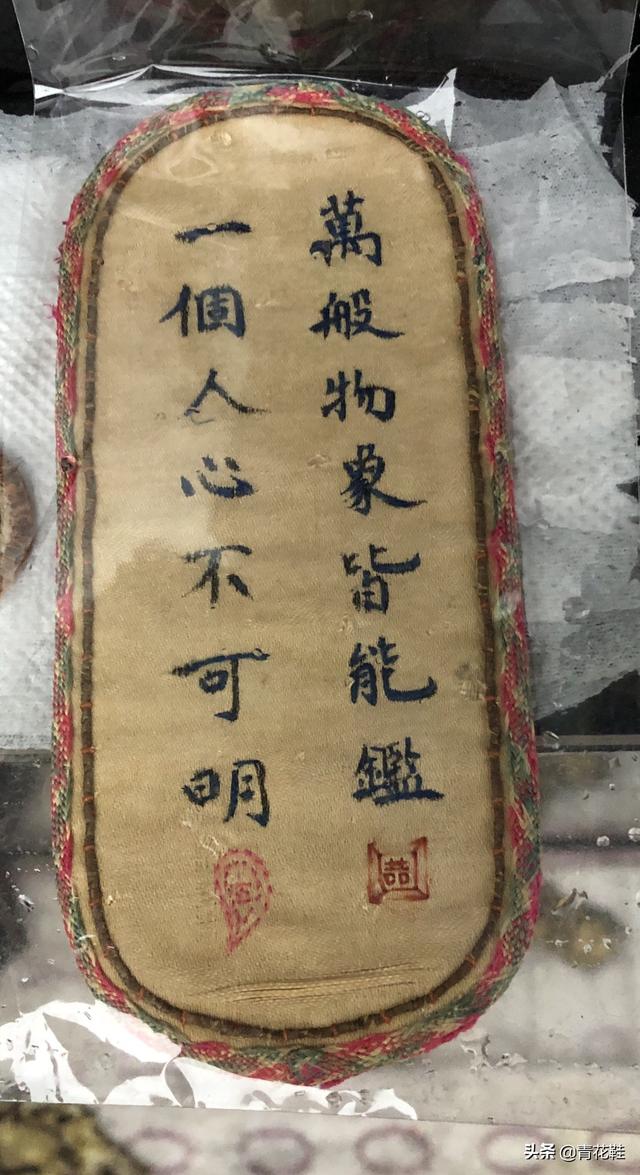 萬般物象皆能鑑
一個人心不可明
頭条 @青花鞋